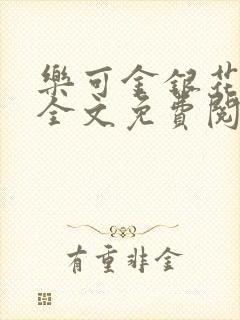 樂可金銀花
全文免費閱
有重非金